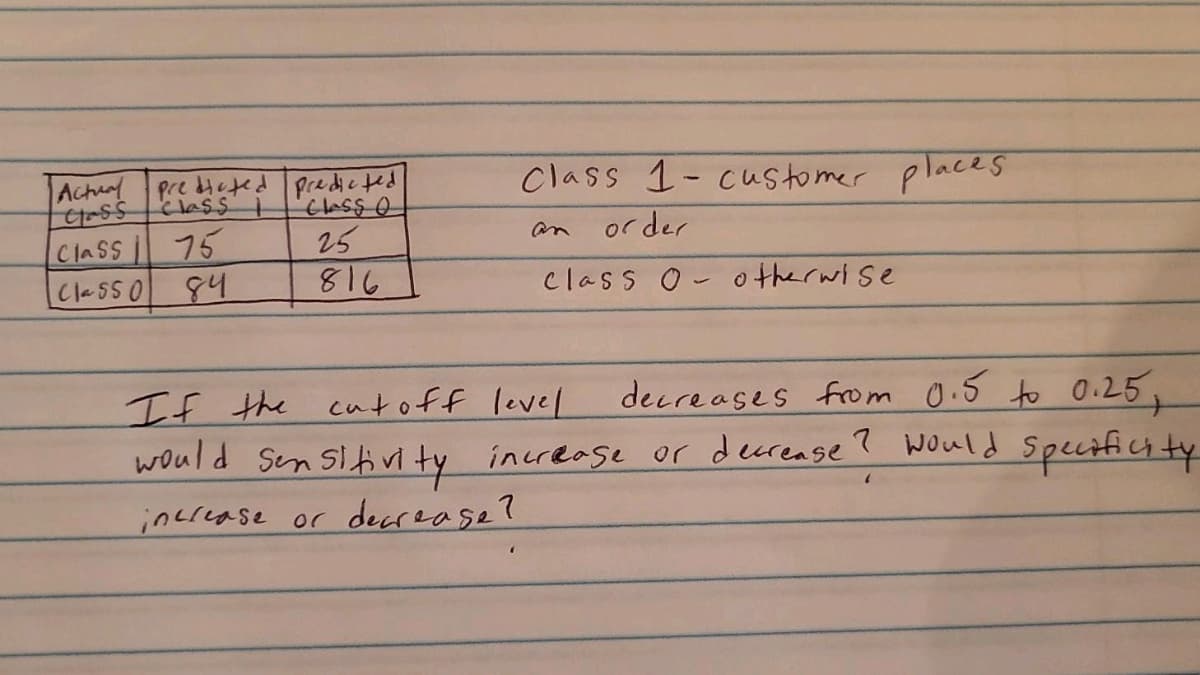 Actual Class | predicted class 1 | predicted class 0
class 1 | 75 | 25
class 0 | 84 | 816
Class 1 - customer places
an order
class 0 - otherwise
If the cutoff level decreases from 0.5 to 0.25,
would sensitivity increase or decrease? Would specificity
increase or decrease?